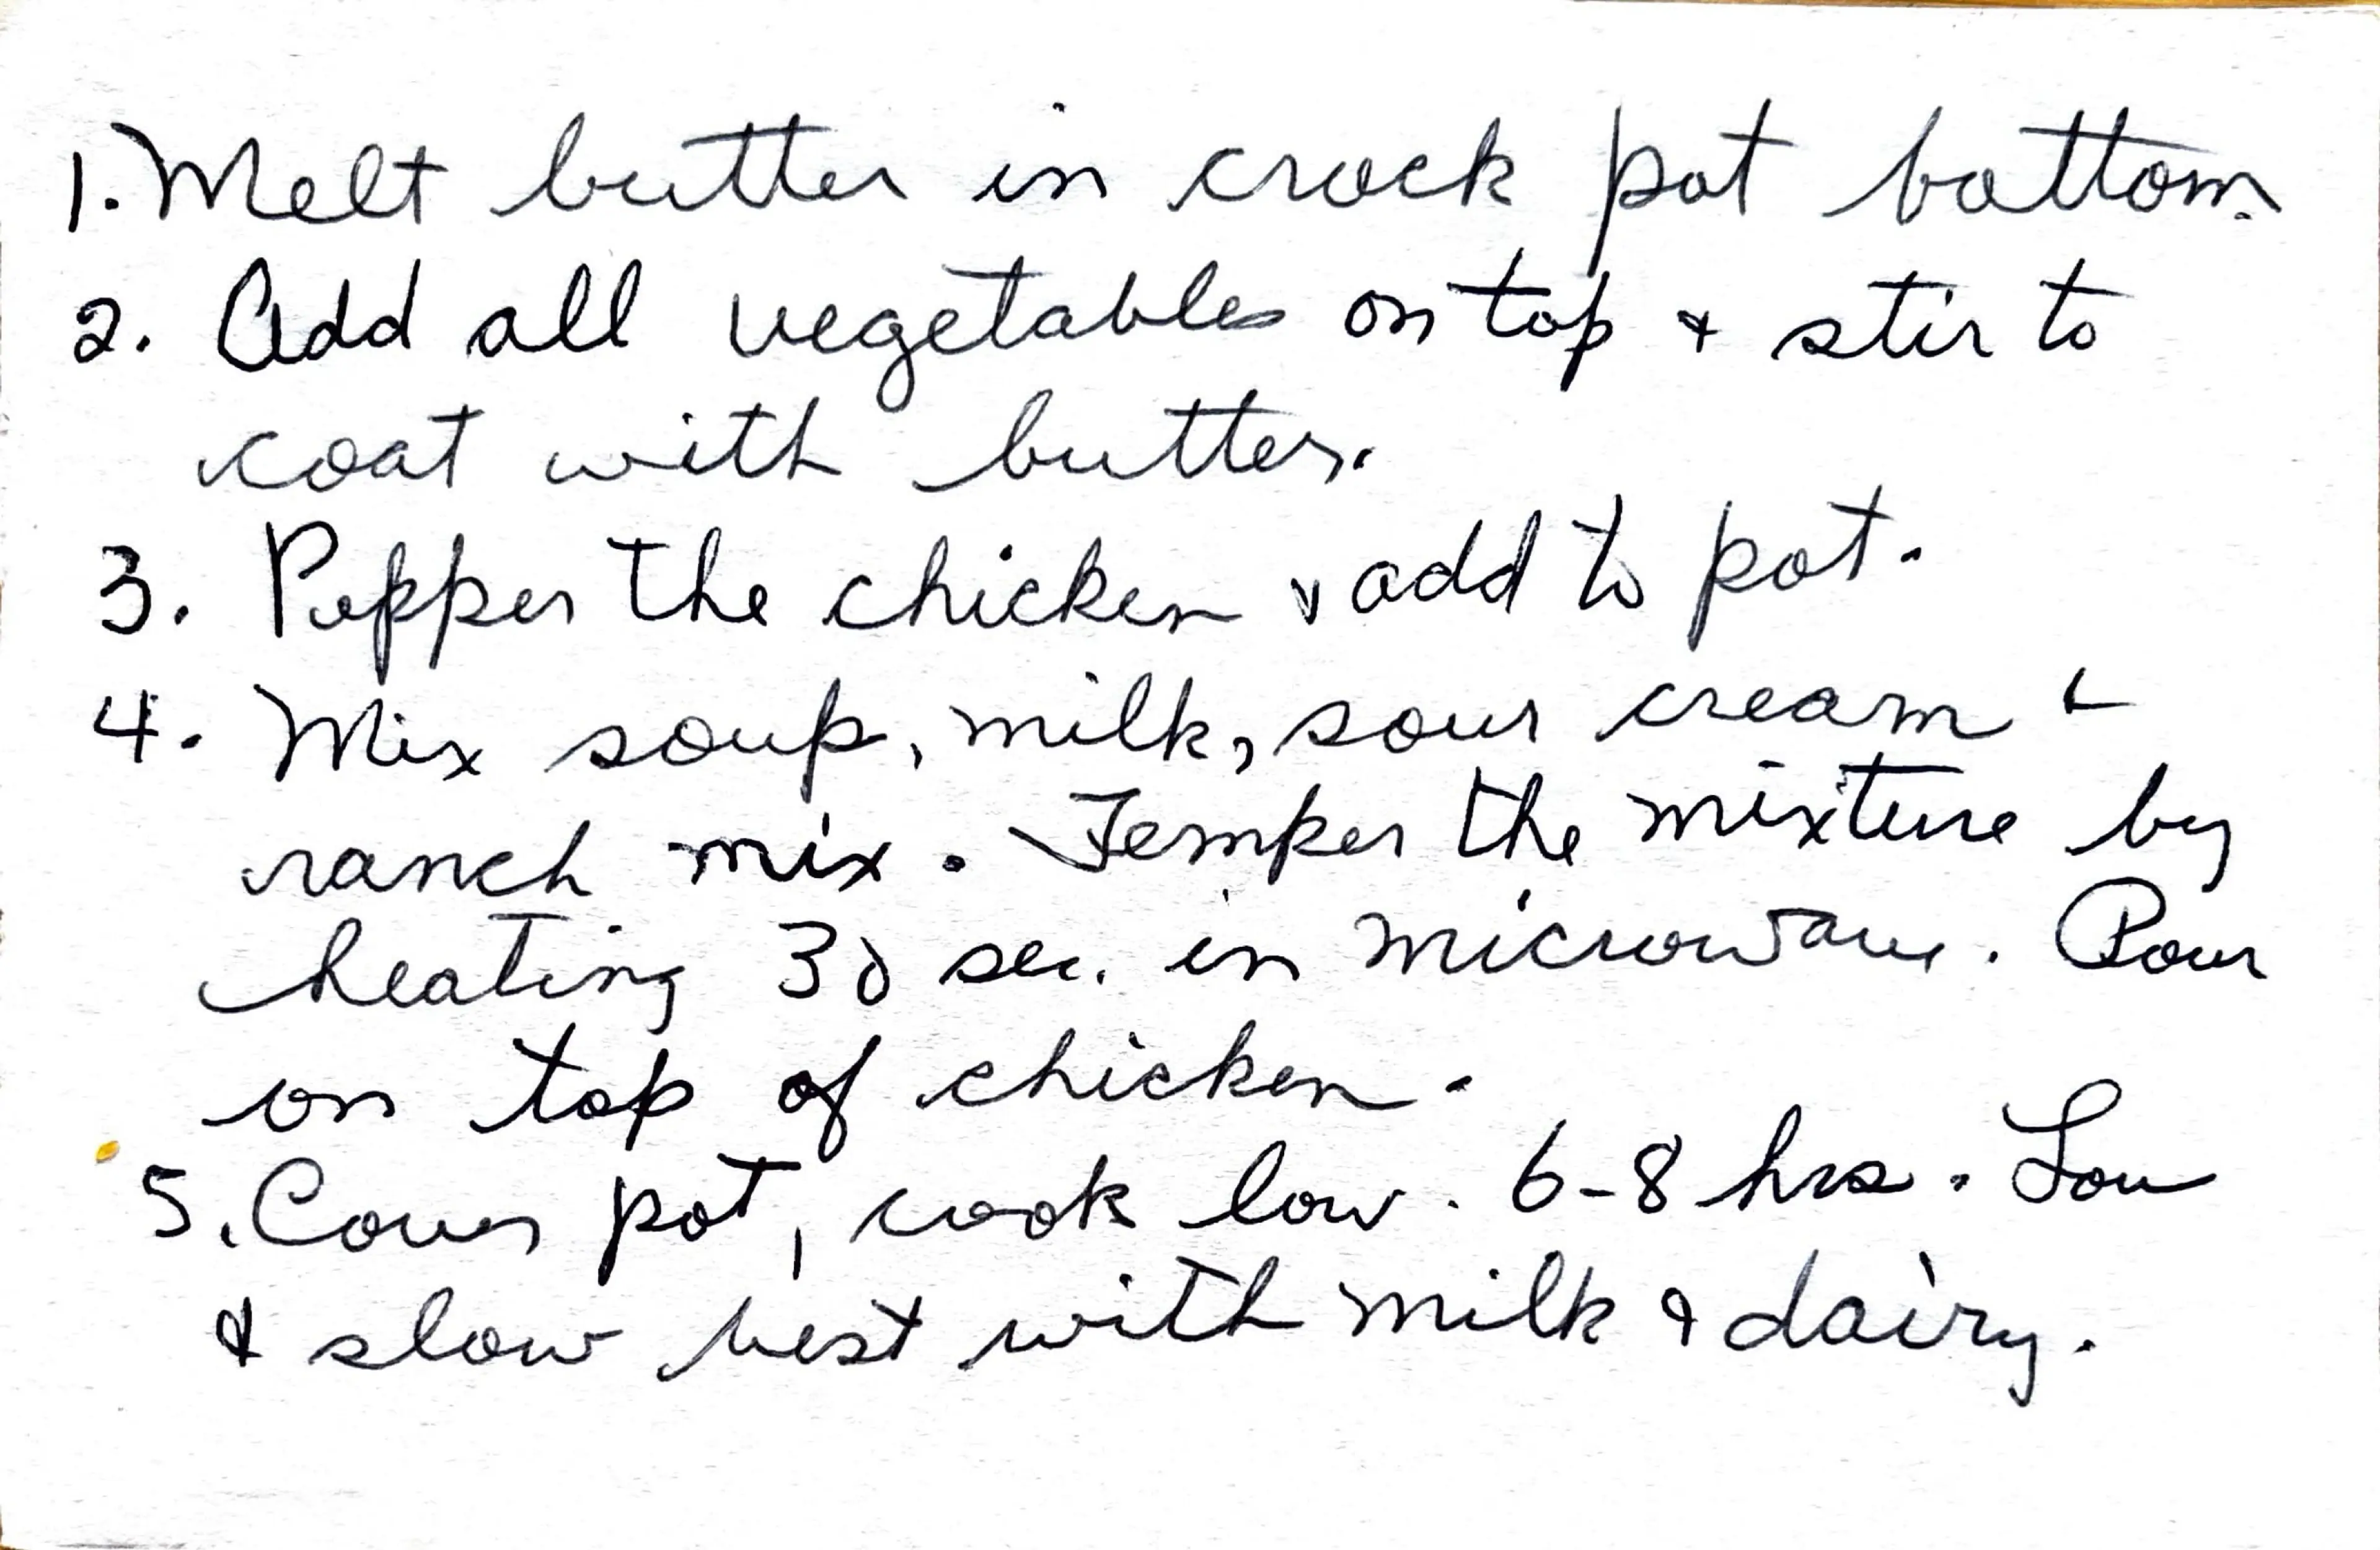 1. Melt butter in crock pot bottom.
2. Add all vegetables on top & stir to
coat with butter.
3. Pepper the chicken & add to pot.
4. Mix soup, milk, sour cream &
ranch mix. Temper the mixture by
heating 30 sec. in microwave. Pour
on top of chicken.
5. Cover pot, cook low. 6-8 hrs. Low
& slow best with milk & dairy.